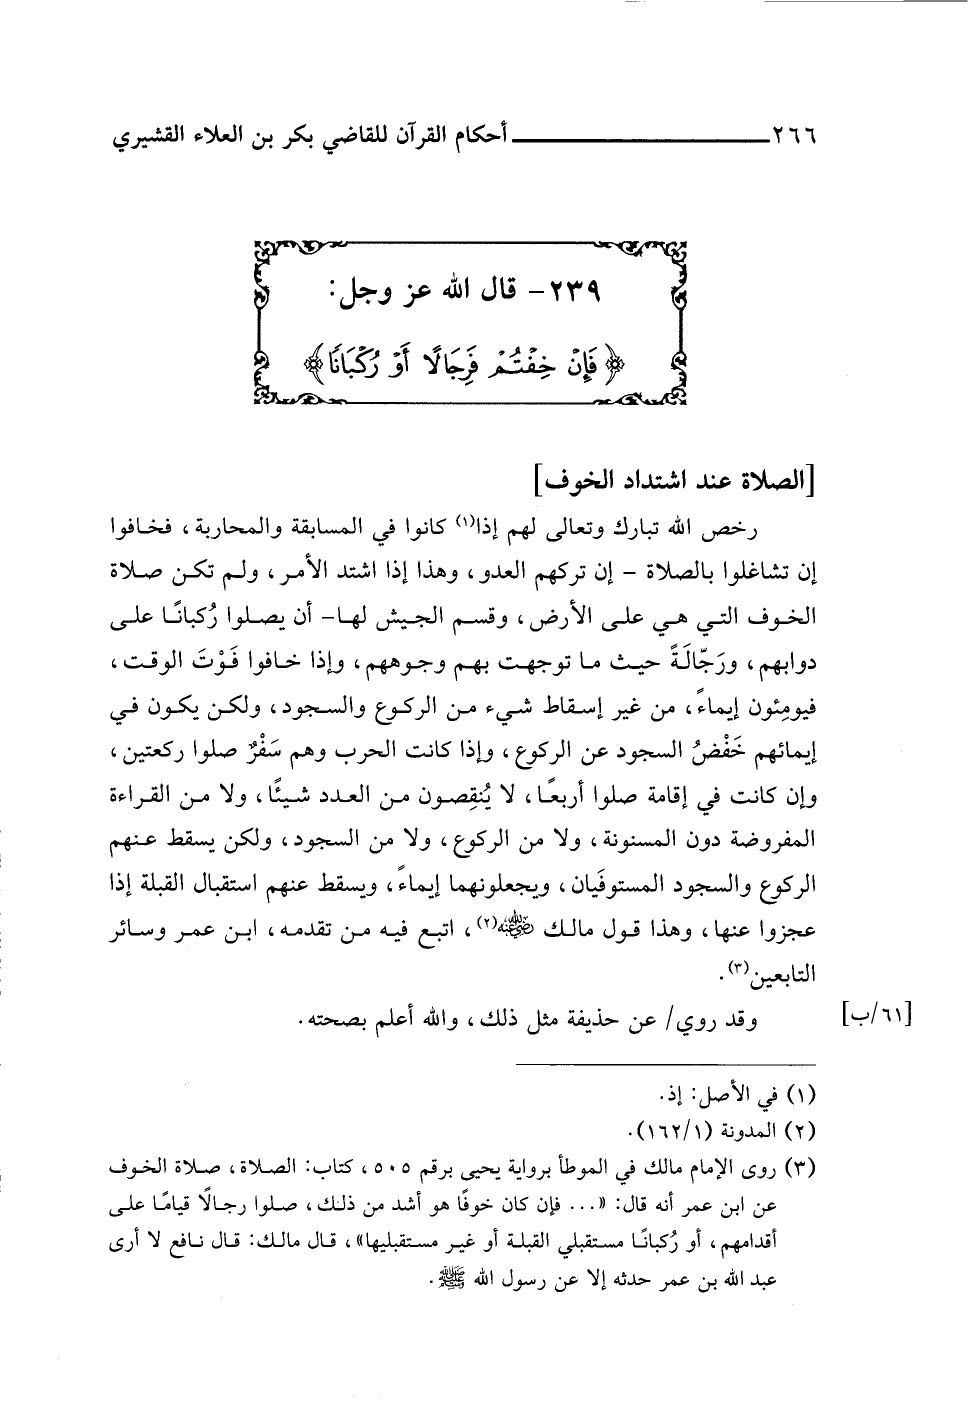 ٢٦٦ أحكام القرآن للقاضي بكر بن العلاء القشيري
٢٣٩- قال الله عز وجل:
﴿فَإِنْ خِفْتُمْ فَرِجَالًا أَوْ رُكْبَانًا﴾
[الصلاة عند اشتداد الخوف]
رخص الله تبارك وتعالى لهم إذا(١) كانوا في المسابقة والمحاربة، فخافوا
إن تشاغلوا بالصلاة - إن تركهم العدو، وهذا إذا اشتد الأمر، ولم تكن صلاة
الخوف التي هي على الأرض، وقسم الجيش لها- أن يصلوا رُكبانًا على
دوابهم، ورَجّالَةً حيث ما توجهت بهم وجوههم، وإذا خافوا فَوْتَ الوقت،
فيومِئون إيماءً، من غير إسقاط شيء من الركوع والسجود، ولكن يكون في
إيمائهم خَفْضُ السجود عن الركوع، وإذا كانت الحرب وهم سَفْرٌ صلوا ركعتين،
وإن كانت في إقامة صلوا أربعًا، لا يُنقِصون من العدد شيئًا، ولا من القراءة
المفروضة دون المسنونة، ولا من الركوع، ولا من السجود، ولكن يسقط عنهم
الركوع والسجود المستوفَيان، ويجعلونهما إيماءً، ويسقط عنهم استقبال القبلة إذا
عجزوا عنها، وهذا قول مالك رضي الله عنه(٢)، اتبع فيه من تقدمه، ابن عمر وسائر
التابعين(٣).
وقد روي/ عن حذيفة مثل ذلك، والله أعلم بصحته. [٦١/ب]
(١) في الأصل: إذ.
(٢) المدونة (١٦٢/١).
(٣) روى الإمام مالك في الموطأ برواية يحيى برقم ٥٠٥، كتاب: الصلاة، صلاة الخوف
عن ابن عمر أنه قال: «... فإن كان خوفًا هو أشد من ذلك، صلوا رجالًا قيامًا على
أقدامهم، أو رُكبانًا مستقبلي القبلة أو غير مستقبليها»، قال مالك: قال نافع لا أرى
عبد الله بن عمر حدثه إلا عن رسول الله ﷺ.